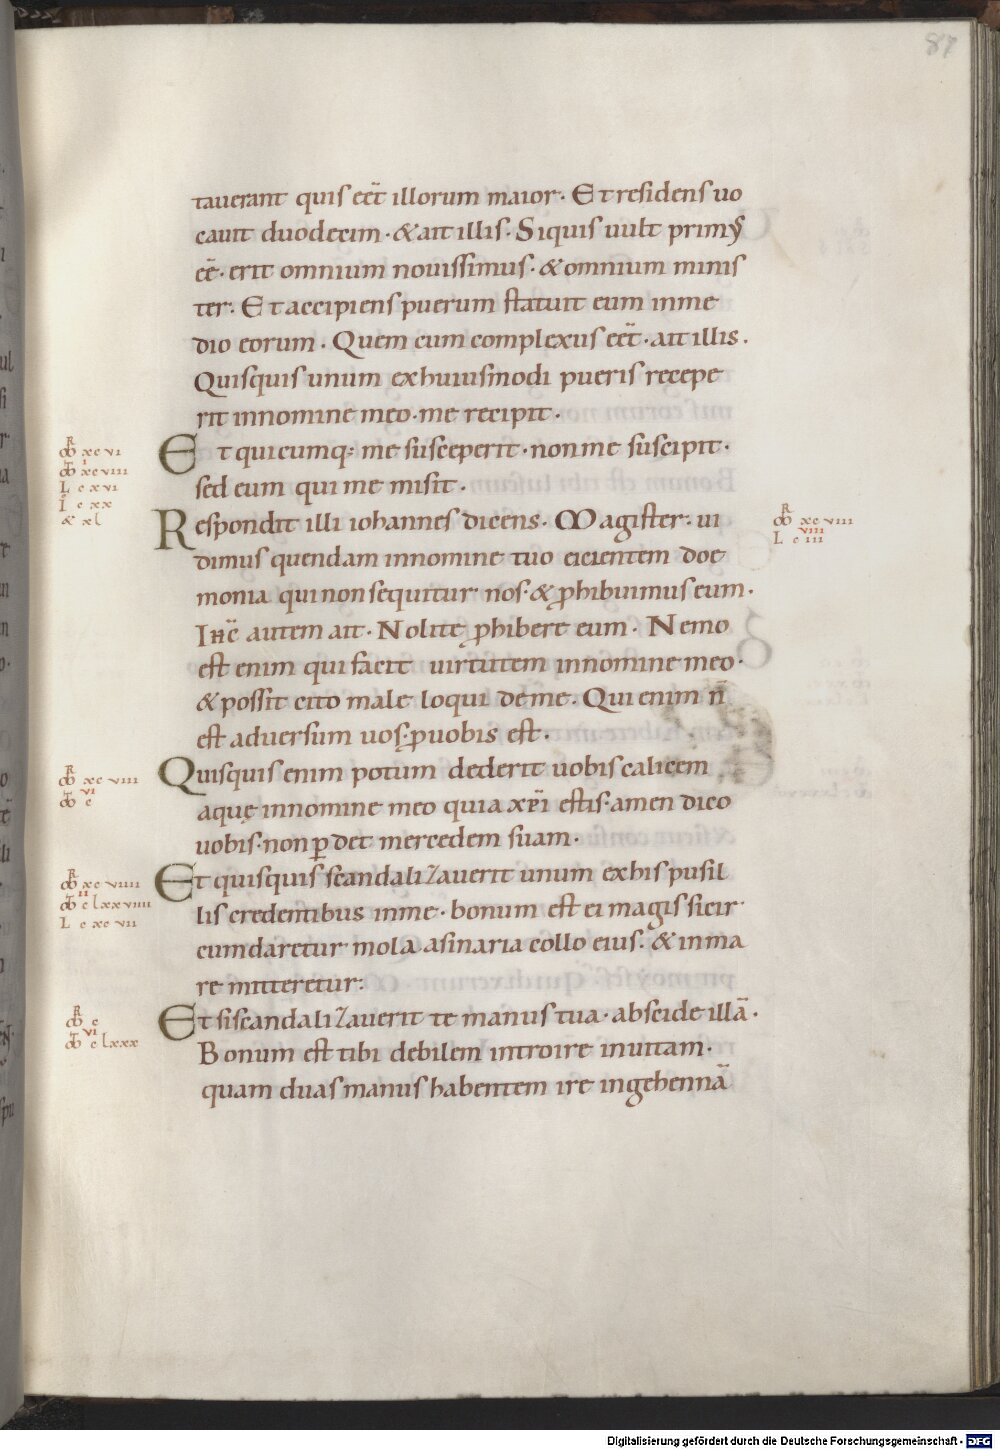 87
tauerant quis eēt illorum maior. Et residens uo
cauit duodecim. & ait illis. Siquis uult primꝰ
eē. erit omnium nouissimus. & omnium minis
ter. Et accipiens puerum statuit eum inme
dio eorum. Quem cum complexus eēt. ait illis.
Quisquis unum exhuiusmodi pueris recepe
rit innomine meo. me recipit.
Et quicumq; me susceperit. non me suscipit.
sed eum qui me misit.
Respondit illi iohannes dicens. Magister. ui
dimus quendam innomine tuo eicientem doe
monia qui non sequitur nos. & ꝓhibuimus eum.
Ihc̄ autem ait. Nolitę ꝓhibere eum. Nemo
est enim qui facit uirtutem innomine meo.
& possit cito male loqui deme. Qui enim n̄
est aduersum uos. ꝓuobis est.
Quisquis enim potum dederit uobis calicem
aquę innomine meo quia xp̄i estis. amen dico
uobis. non ꝑdet mercedem suam.
Et quisquis scandalizauerit unum exhis pusil
lis credentibus inme. bonum est ei magis sicir
cumdaretur mola asinaria collo eius. & inma
re mitteretur.
Et siscandalizauerit te manus tua. abscide illā.
Bonum est tibi debilem introire inuitam.
quam duas manus habentem ire ingehennā
Digitalisierung gefördert durch die Deutsche Forschungsgemeinschaft - DFG